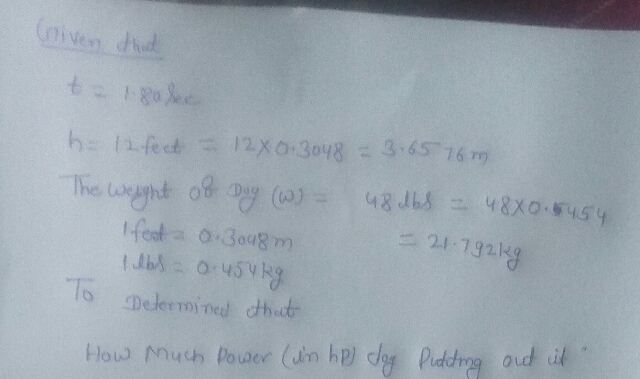 Given that
t = 1.80 sec
h = 12 feet = 12X0.3048 = 3.6576 m
The weight of Dog (w) = 48 lbs = 48X0.454
1 feet = 0.3048 m = 21.792 kg
1 lbs = 0.454 kg
To Determined that
How Much Power (in hp) dog Pudding out it